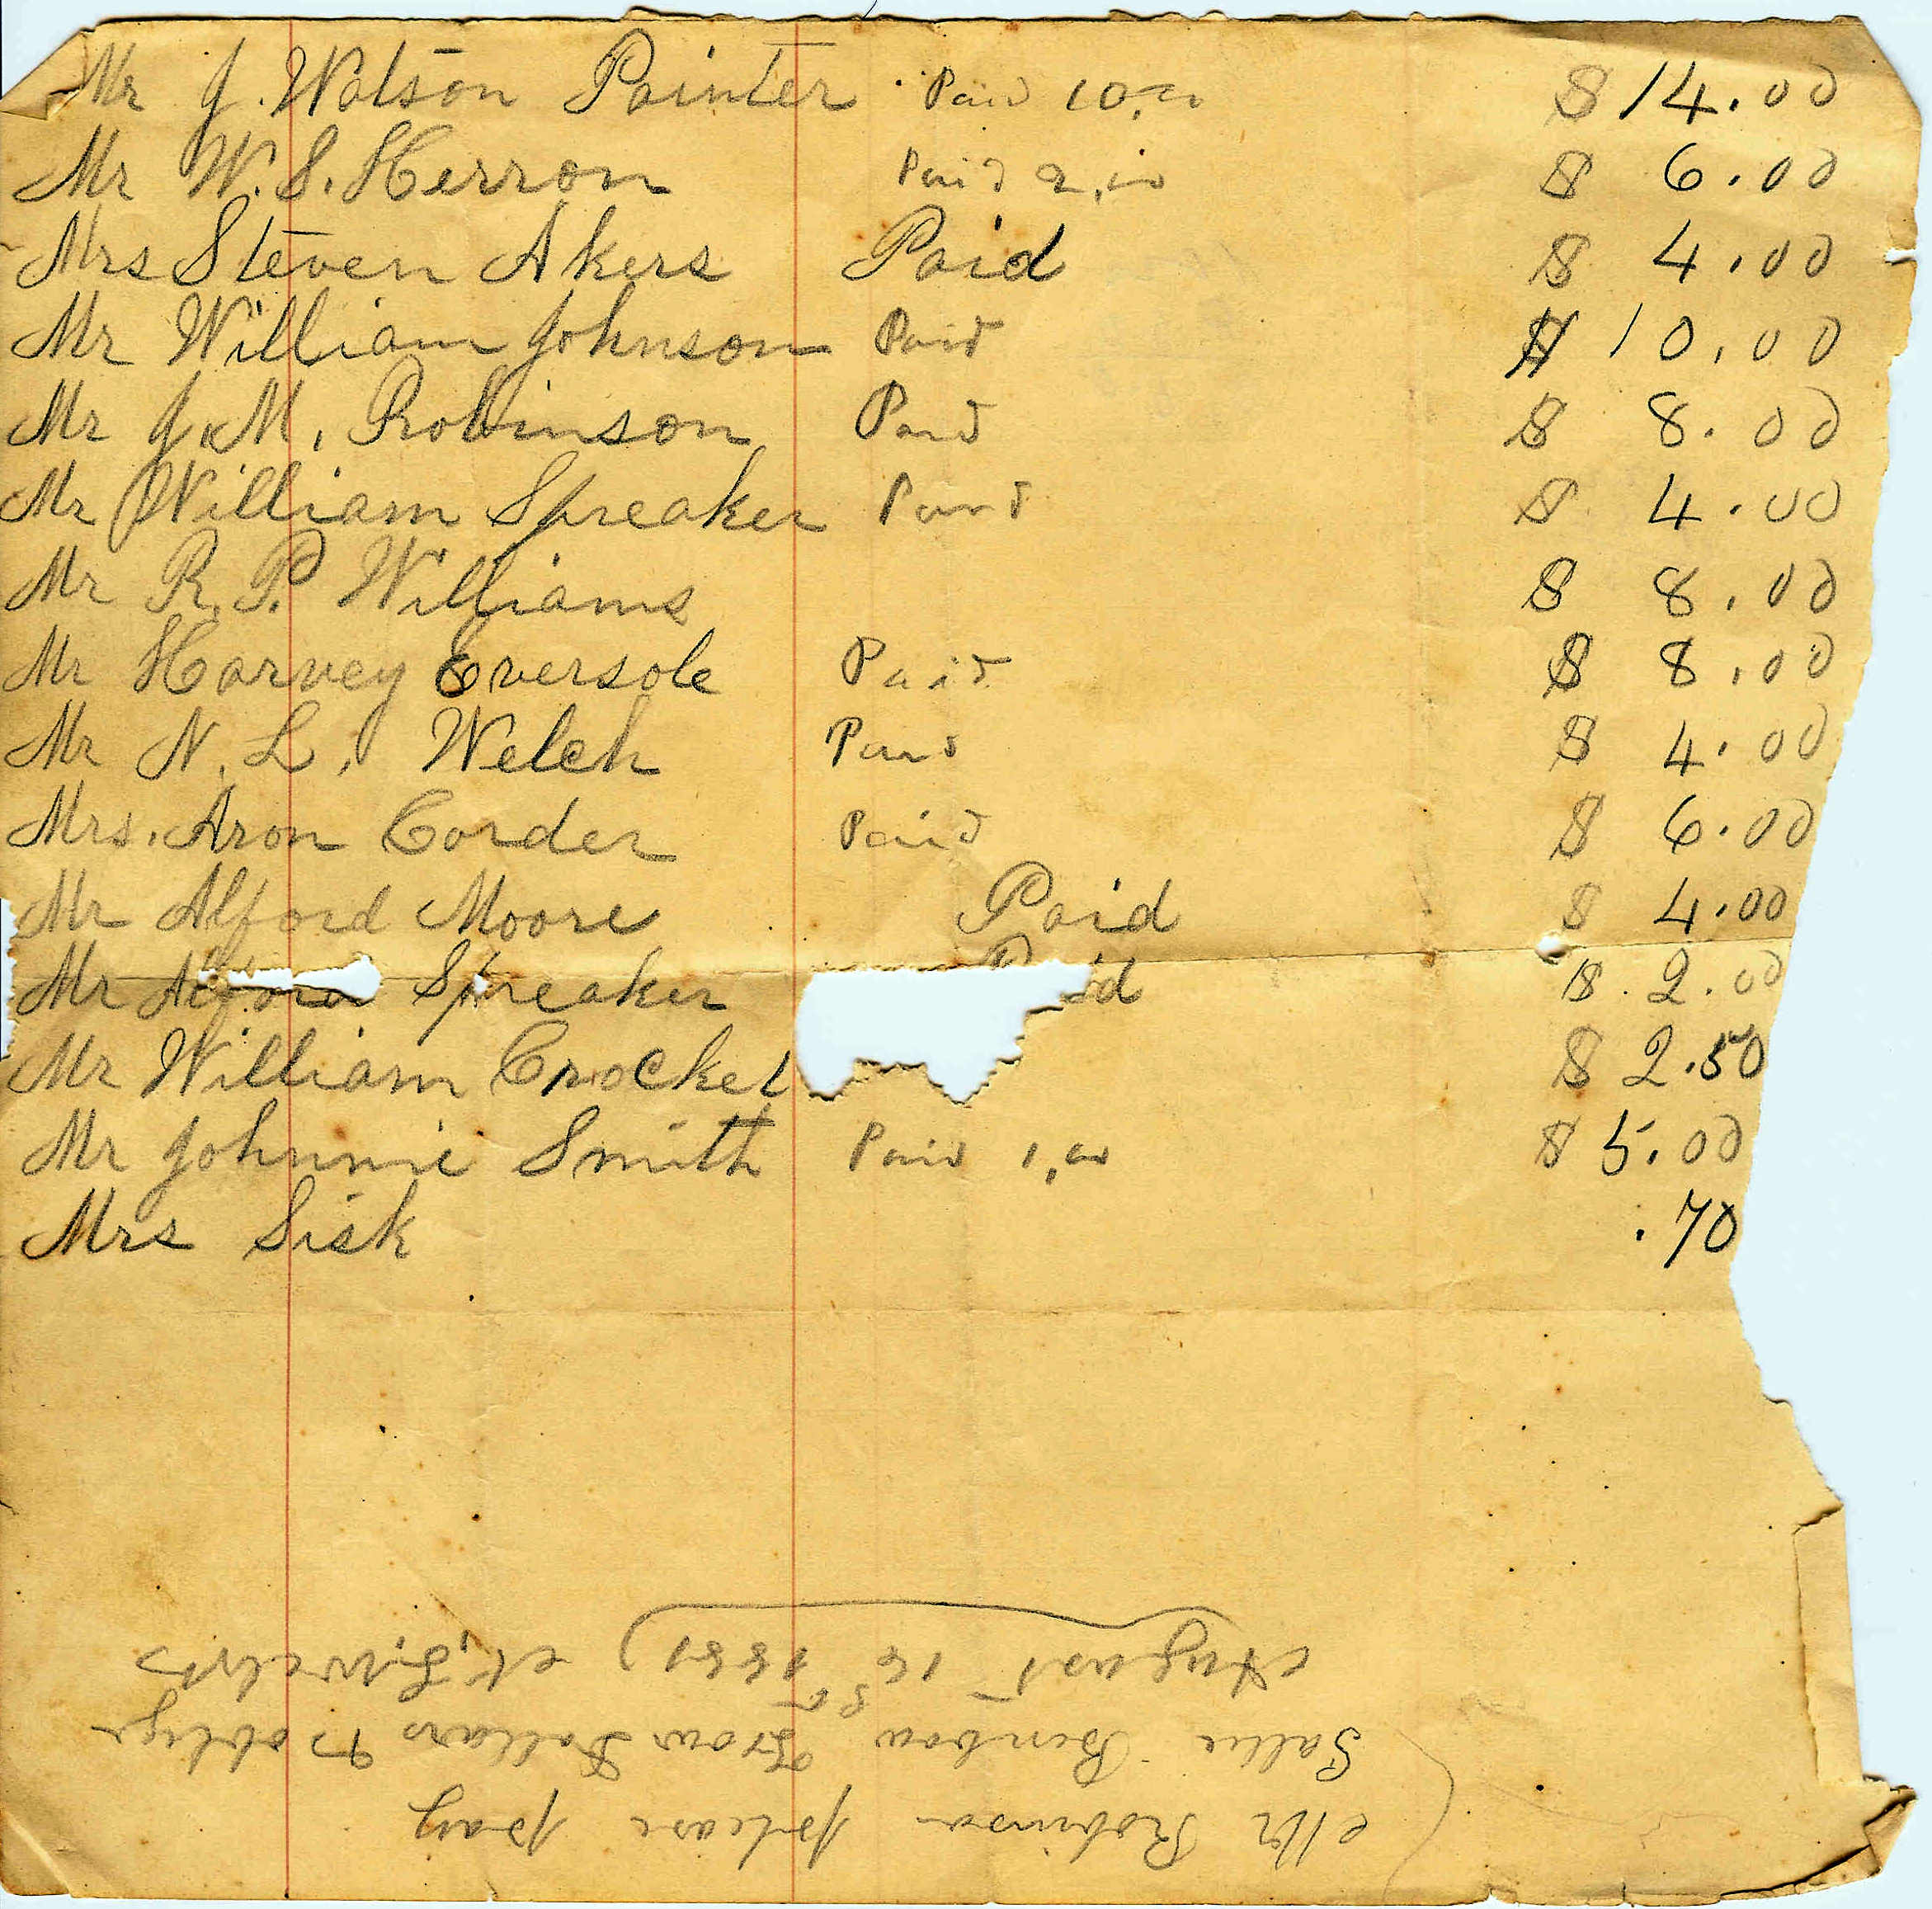 Mr J. Watson Painter Paid 10.00 $14.00
Mr W. S. Herron Paid 2.00 $ 6.00
Mrs Steven Akers Paid $ 4.00
Mr William Johnson Paid $ 10.00
Mr J. M. Robinson Paid $ 8.00
Mr William Spreaker Paid $ 4.00
Mr R. P. Williams $ 8.00
Mr Harvey Eversole Paid $ 8.00
Mr N. L. Welch Paid $ 4.00
Mrs. Aron Corder Paid $ 6.00
Mr Alford Moore Paid $ 4.00
Mr Alford Spreaker Paid $ 2.00
Mr William Crocket $ 2.50
Mr Johnnie Smith Paid 1.00 $ 5.00
Mrs Sisk .70
Mr Robinson please pay
Sallie Dollars & oblige
August 16 1881